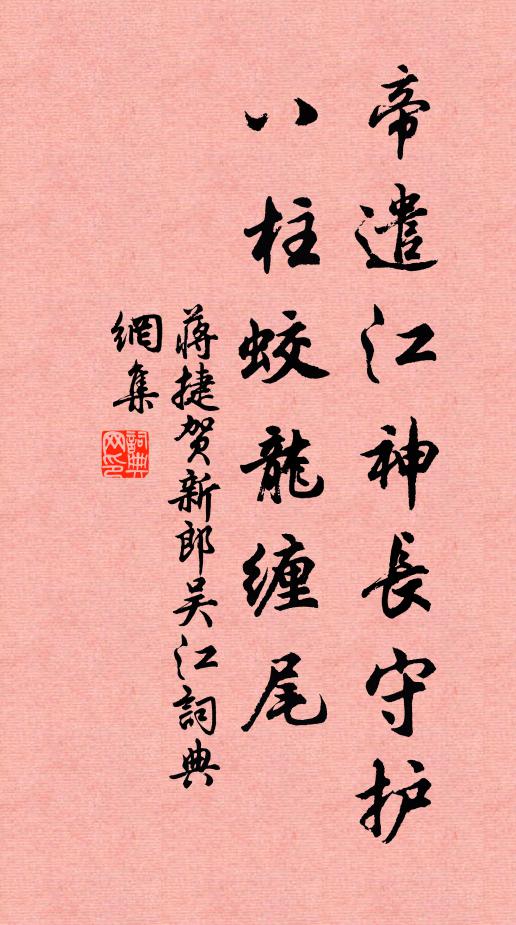 帝遣江神長守护
八柱蛟龍缠尾
蔣捷贺新郎吴江詞典
網集
詞典网印